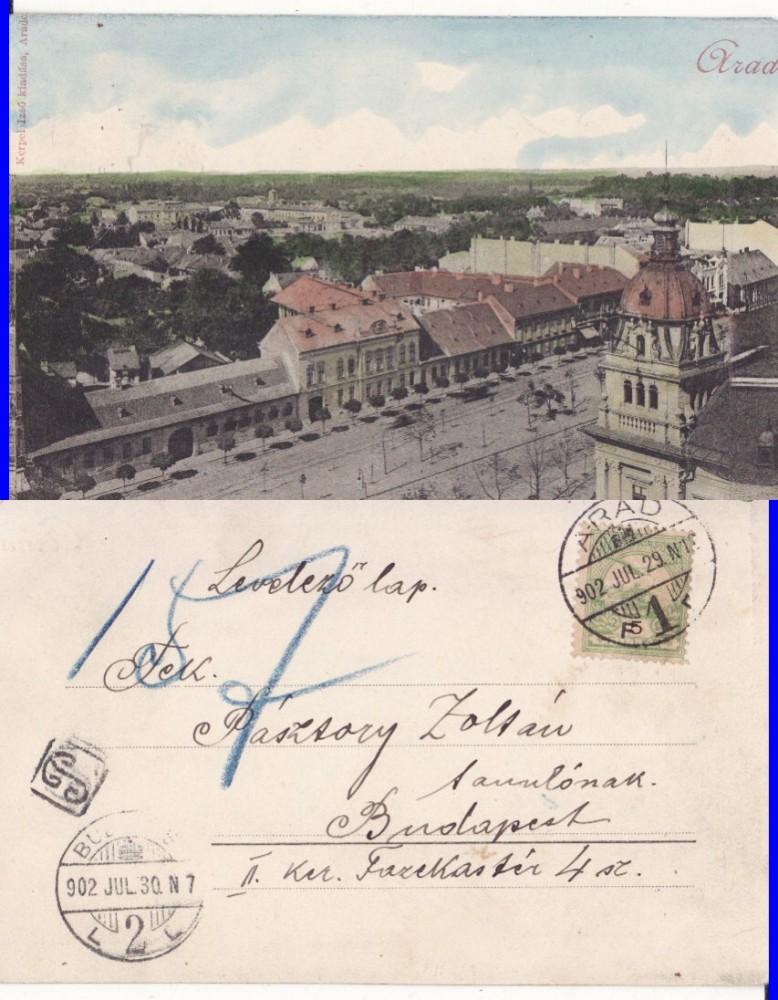 Kerpel Izsó kiadása, Arado
Arad
Levelező lap.
Tek.
Pásztory Zoltán
tanulónak.
Budapest
II. Ker. Fazekastér 4 sz.
ARAD
902 JUL. 29. N1
1
F 5
157
BU
902 JUL. 30. N 7
L 2 L